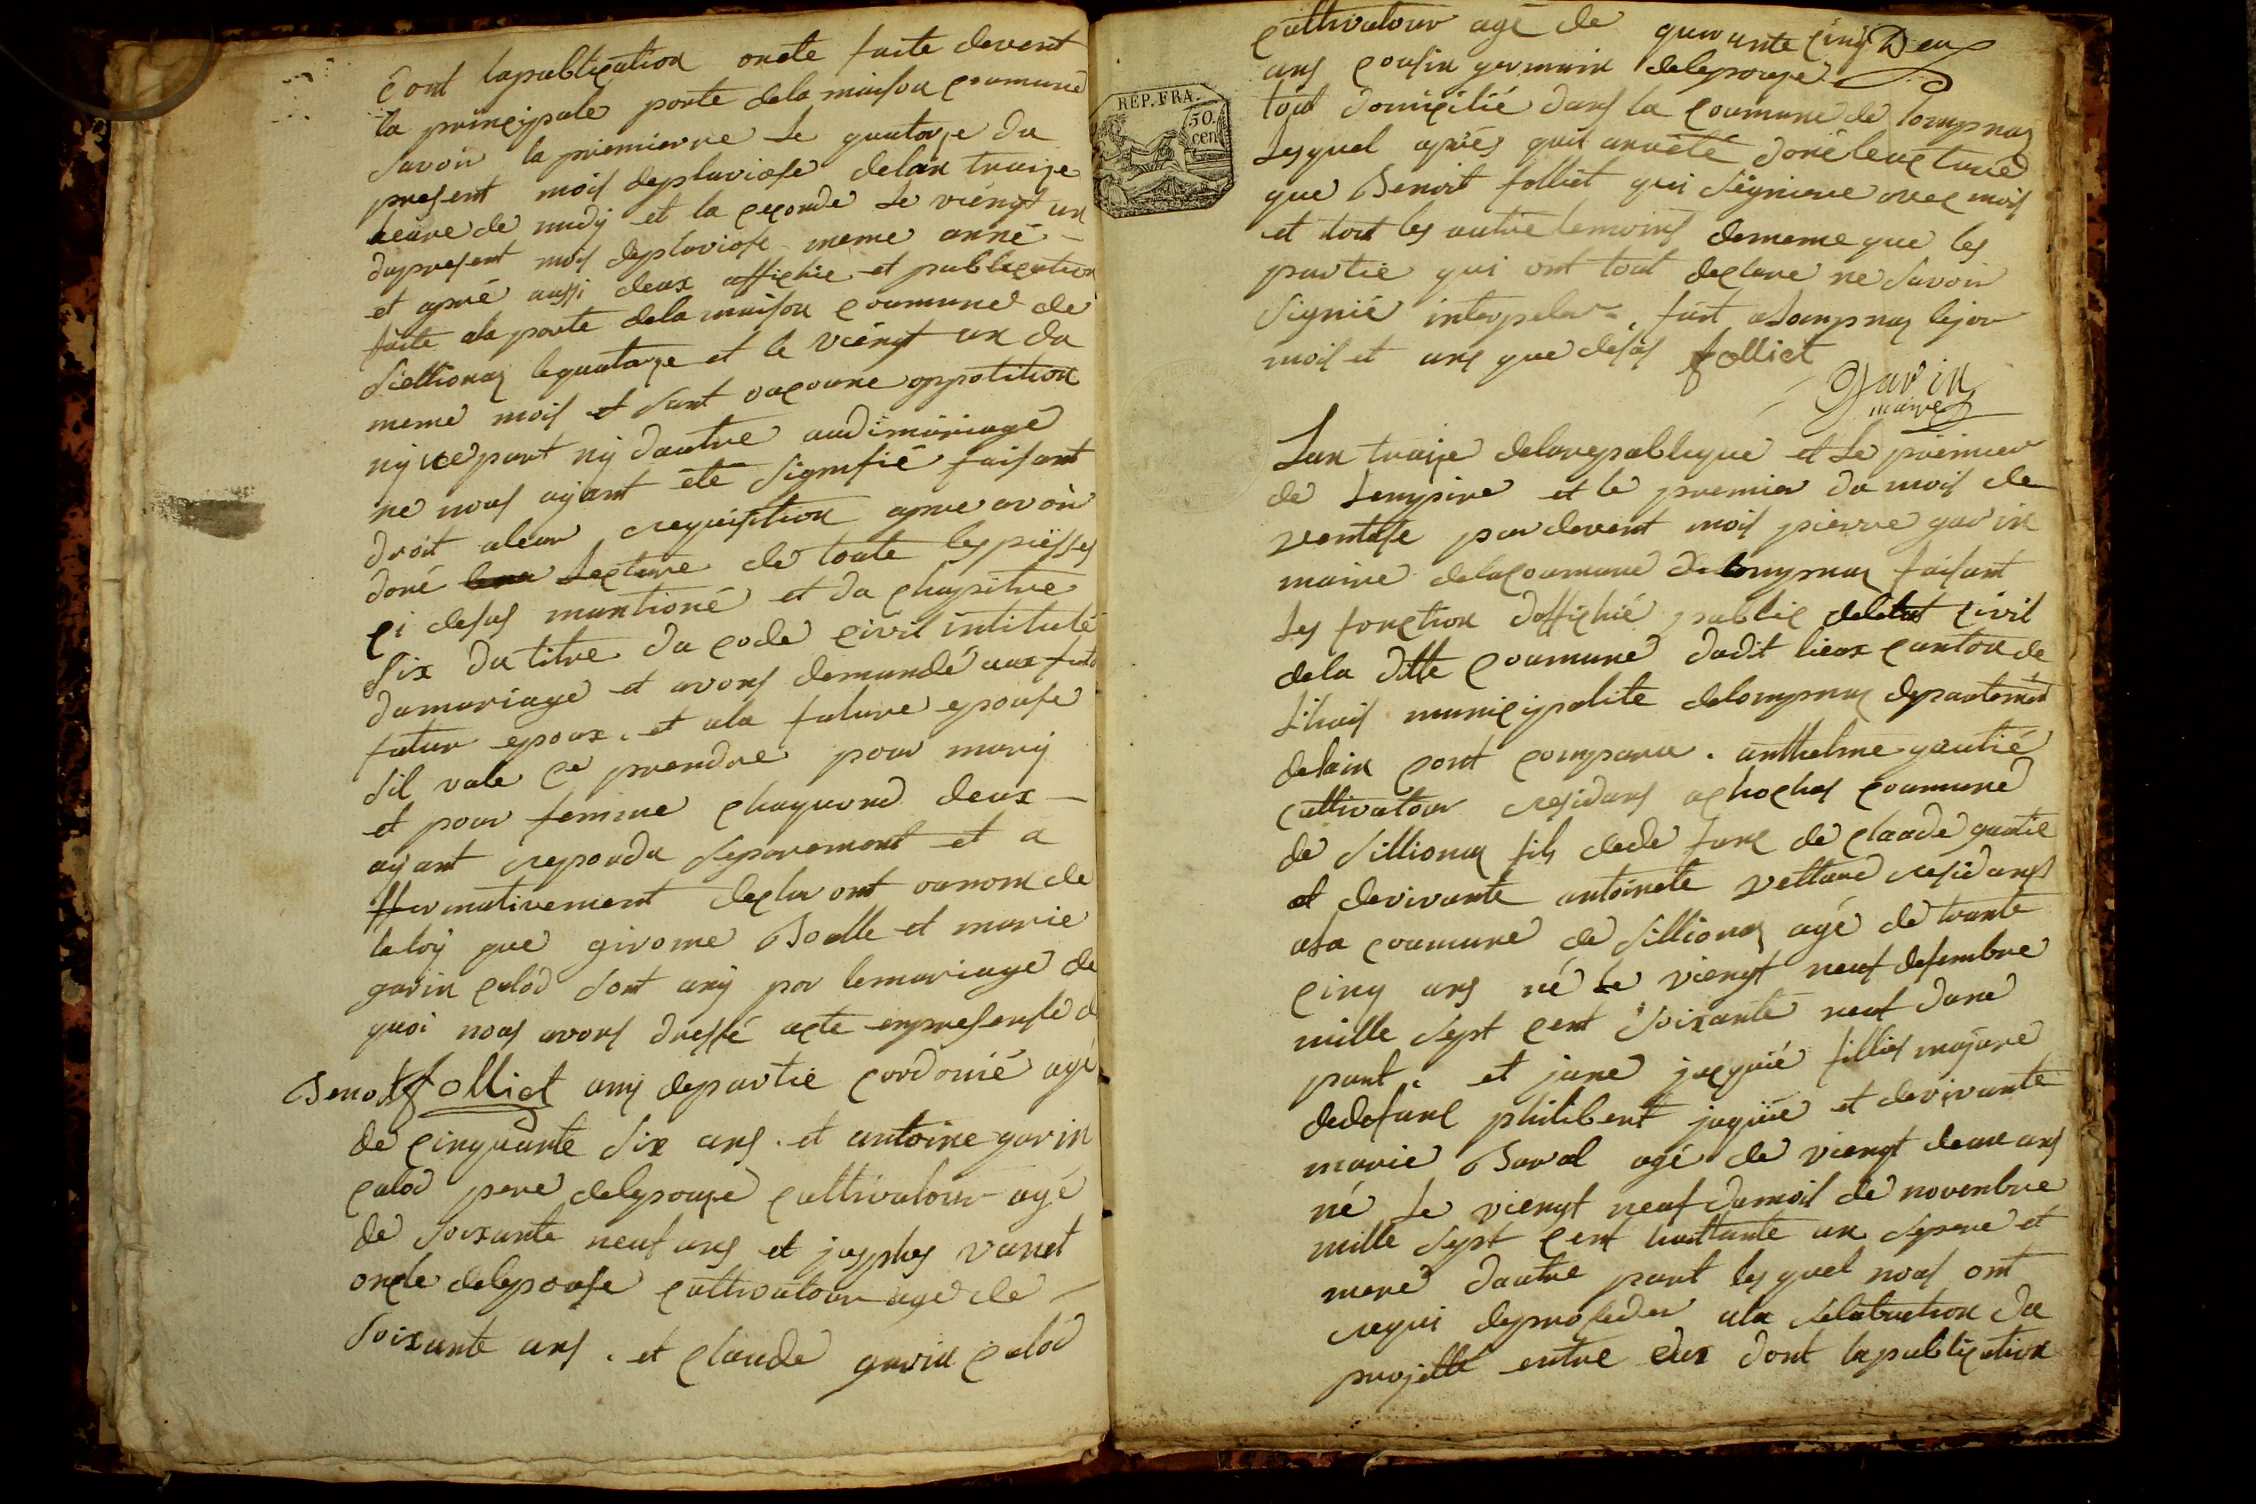 dont lapublication onete faite devent
la principale porte dela maison coumune
savoir la premierre le quatorze du
present mois depluviose delan traize
heure de midy et la ceconde le viengt un
dupresent mois depluviose meme anné
et apré aussi deux affichie et publication
faite ala porte dela maison coumune de
sillionaz lequatorze et le viengt un du
meme mois et sant oucoune oppotition
ny ice part ny dautre audimariage
ne nous ayant été signifié faisant
droit aleur requisition apre avoir
doné lecture de toute les piesses
ci desus mantioné et du chapitre
six du titre du code civil intitulé
dumariage et avons demandé aux
futur epoux . et ala future epouse
sil vale ce prendre pour mary
et pour femme chaquond deux
ayant repondu separement et a
ffermativement declar ont ounom de
la loy que girome Boelle et marie
gavin calod sont any par lemariage de
quoi nous avons dressé acte enpresense d
Benoit folliet amy departie cordonié agé
de cinquante six ans . et antoine gavin
calod pere delepouze cultivatour agé
de soixante neuf ans et josephes vanet
oncle delepouse cultivatour agé de
soixante ans . et claude gavin calod
cultivatour agé de quarante cinq Deux
ans cousin germain delepouze
tout domicilié dans la coumune de lompnaz
lesquel aprés qui anneté doné lecturé
que Benoit folliet qui signiere avec mois
et tout les autre temoins dememe que les
partie qui ont tout declaré ne savoir
signié interpelar fait alompnaz lejour
mois et ans que desus folliet
Gavin
maire
Lan traize delarepublique et le premier
de lempire et le premier du mois de
ventose par devent mois pierre gavin
maire delacoumune de lompnaz faisant
les fonction dofficié public deletat civil
dela ditte coumune dudit lieux canton de
lhuis municipalite delompnaz departement
delain cont comparu . anthelme gautié
cultivatour residans achoches coumune
de sillionaz fils dede func de claude gautié
et devivante antoinete vettard residans
ala coumune de sillionaz agé de trante
cinq ans né le viengt neuf desembre
mille sept cent soixante neuf dune
part . et jane juquié fillies majure
dedefunc philibert juquié et devivante
marie Barral agé de viengt deux ans
né le viengt neuf dumois de novenbre
mille sept cent huittante un de pere et
mere dautre part lesquel nous ont
requi deproseder ala selebration du
projetté entre eux dont lapublication
REP. FRA.
50
cen